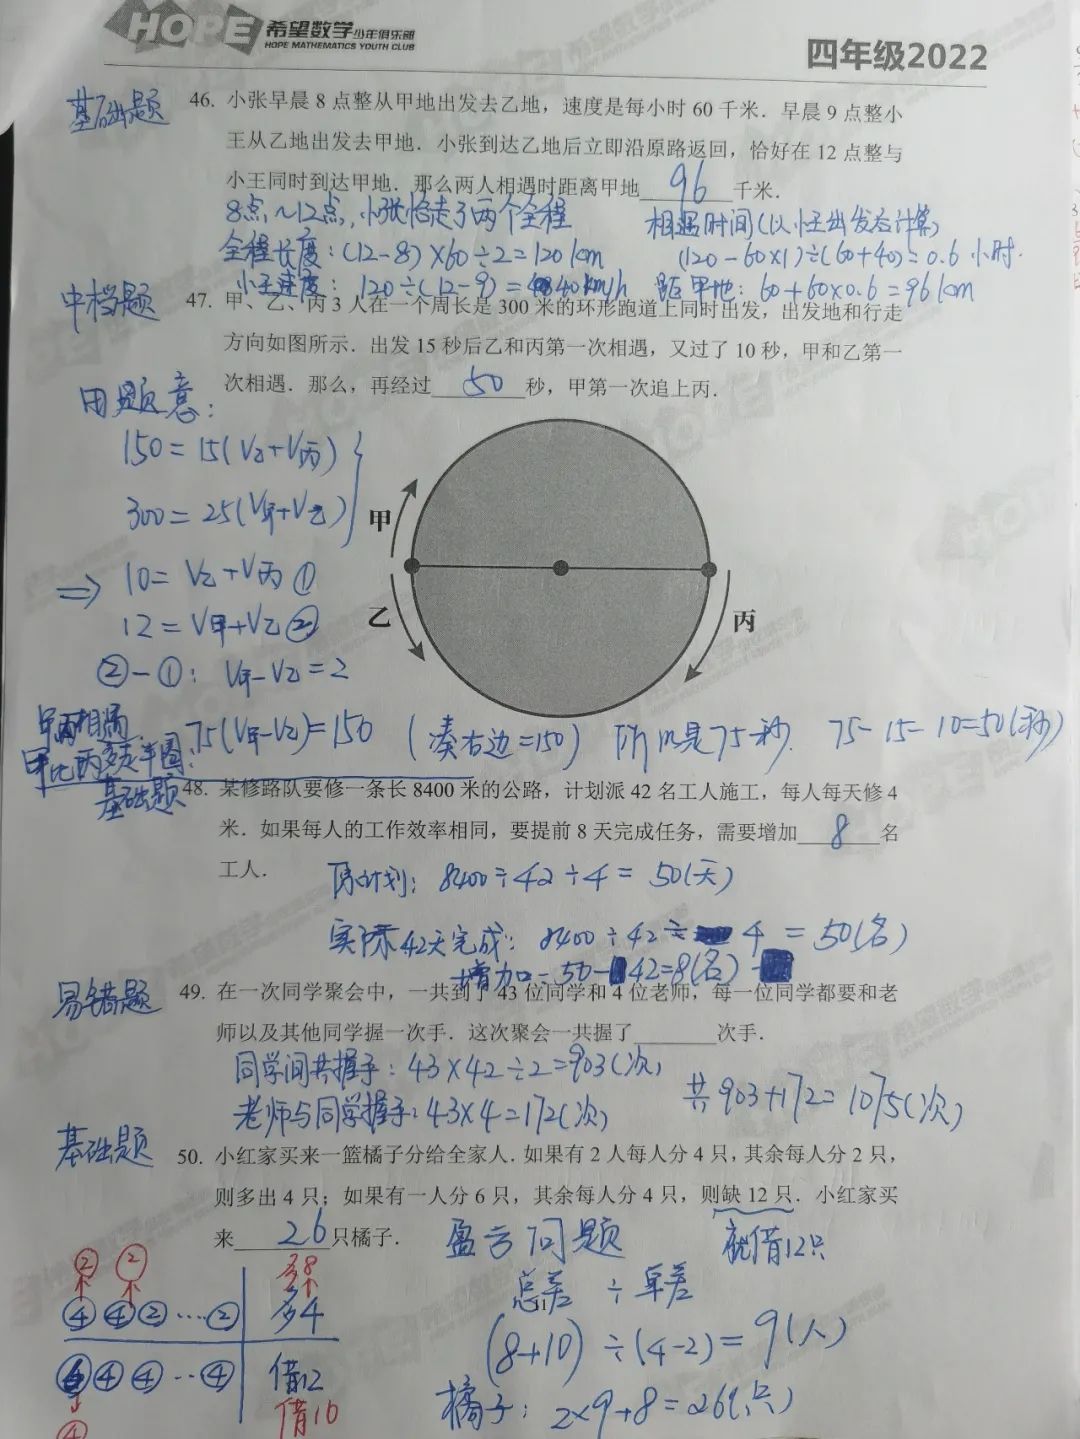 HOPE 希望数学少年俱乐部
HOPE MATHEMATICS YOUTH CLUB
四年级2022
基础题
46. 小张早晨 8 点整从甲地出发去乙地，速度是每小时 60 千米．早晨 9 点整小
王从乙地出发去甲地．小张到达乙地后立即沿原路返回，恰好在 12 点整与
小王同时到达甲地．那么两人相遇时距离甲地 96 千米．
8点~12点，小张恰走了两个全程
相遇时间(以小王出发后计算)
全程长度：(12-8)×60÷2=120km
(120-60×1)÷(60+40)=0.6 小时.
小王速度：120÷(12-9)=40km/h
距甲地：60+60×0.6=96km
中档题
47. 甲、乙、丙 3 人在一个周长是 300 米的环形跑道上同时出发，出发地和行走
方向如图所示．出发 15 秒后乙和丙第一次相遇，又过了 10 秒，甲和乙第一
次相遇．那么，再经过 50 秒，甲第一次追上丙．
由题意：
150=15(V乙+V丙)
300=25(V甲+V乙)
⇒ 10=V乙+V丙 ①
12=V甲+V乙 ②
②-①：V甲-V乙=2
甲
乙
丙
甲丙相遇,
甲比丙多走半圈：
75(V甲-V乙)=150 (凑右边=150) 所以是75秒. 75-15-10=50(秒)
基础题
48. 某修路队要修一条长 8400 米的公路，计划派 42 名工人施工，每人每天修 4
米．如果每人的工作效率相同，要提前 8 天完成任务，需要增加 8 名
工人．
原计划：8400÷42÷4=50(天)
实际42天完成：8400÷42÷4=50(名)
增加：50-42=8(名)
易错题
49. 在一次同学聚会中，一共到了 43 位同学和 4 位老师，每一位同学都要和老
师以及其他同学握一次手．这次聚会一共握了 次手．
同学间共握手：43×42÷2=903(次)
老师与同学握手：43×4=172(次)
共903+172=1075(次)
基础题
50. 小红家买来一篮橘子分给全家人．如果有 2 人每人分 4 只，其余每人分 2 只，
则多出 4 只；如果有一人分 6 只，其余每人分 4 只，则缺 12 只．小红家买
来 26 只橘子．
盈亏问题
就借12只
② ②
多8
④ ④ ② … ②
多4
④ ④ … ④
借12
④
借10
总差 ÷ 单差
11
(8+10)÷(4-2)=9(人)
橘子：2×9+8=26(只)